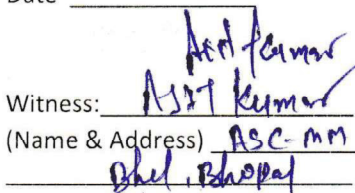 Date
Ajit Kumar
Witness: Ajit Kumar
(Name & Address) ASC-MM
Bhel, Bhopal